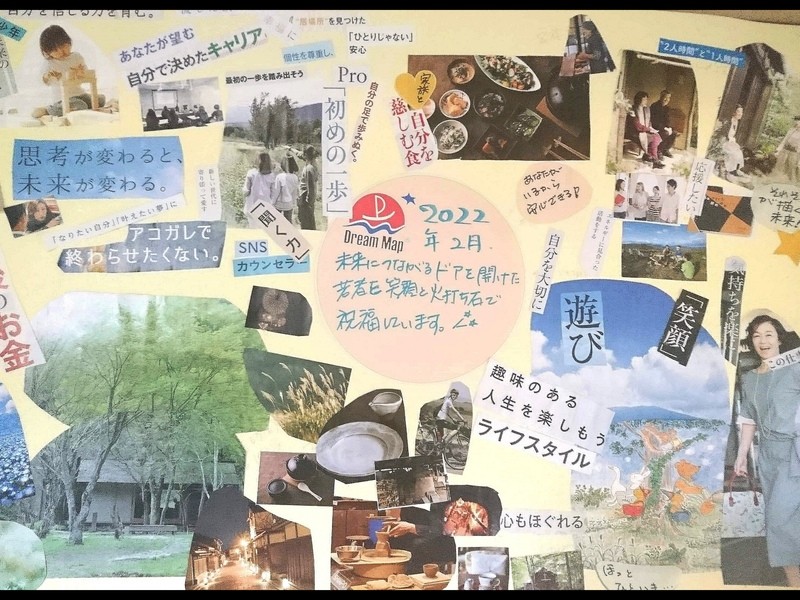 自分を信じる力を育む。
少年
未来の
あなたが望む
自分で決めたキャリア
"居場所"を見つけた
「ひとりじゃない」
安心
個性を尊重し、
最初の一歩を踏み出そう
Pro
「初めの一歩」
自分の足で歩みぬく。
家族と
自分を
慈しむ食
"2人時間"と"1人時間"
思考が変わると、
未来が変わる。
「なりたい自分」「叶えたい夢」に
アコガレで
終わらせたくない。
「聞く力」
SNS
カウンセラー
Dream Map
2022
年2月.
未来につながるドアを開けた
若者を笑顔と火打ち石で
祝福しています。
あなたが
いるから
安心できる!
応援したい
自分を大切に
遊び
「笑顔」
気持ちを楽に
お金
趣味のある
人生を楽しもう
ライフスタイル
心もほぐれる
ほっと